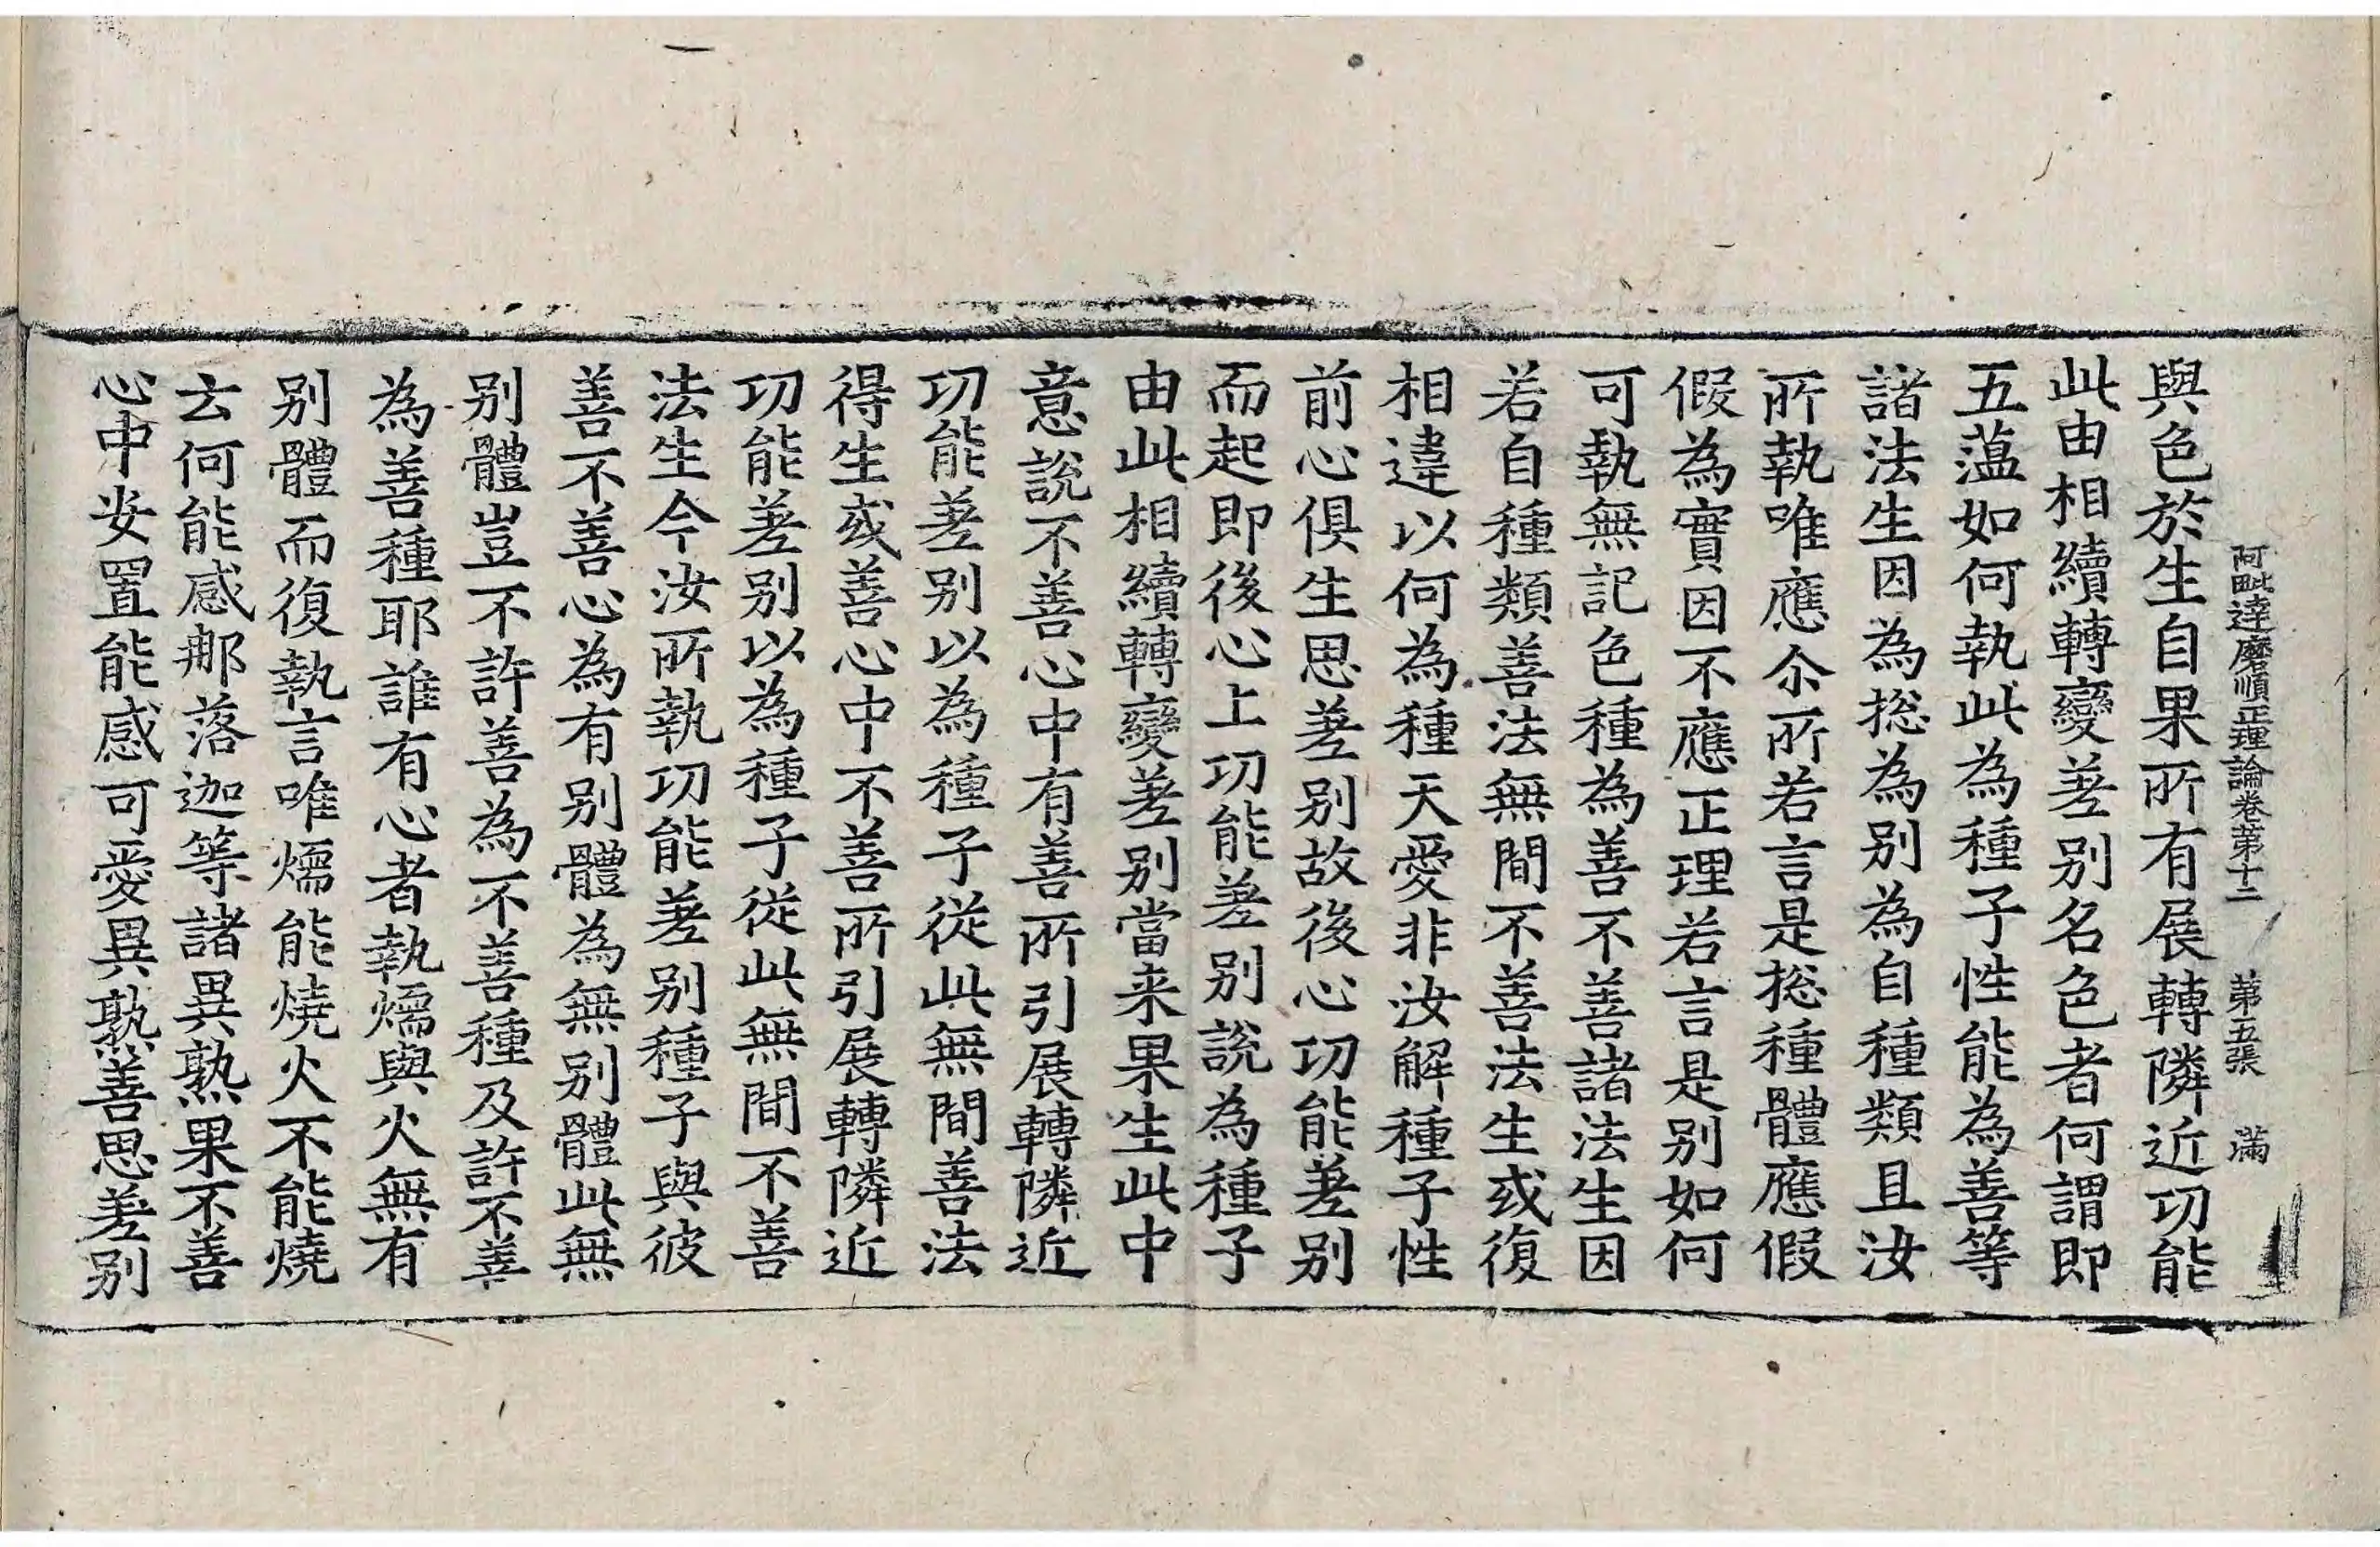 阿毗達磨順正理論卷苐十二 苐五張 滿
與色於生自果所有展轉隣近功能
此由相續轉變差别名色者何謂即
五蕰如何執此為種子性能為善等
諸法生因為揔為别為自種類且汝
所執唯應尒所若言是揔種體應假
假為實因不應正理若言是别如何
可執無記色種為善不善諸法生因
若自種類善法無間不善法生或復
相違以何為種天愛非汝解種子性
前心俱生思差别故後心功能差别
而起即後心上功能差别說為種子
由此相續轉變差别當来果生此中
意說不善心中有善所引展轉隣近
功能差别以為種子從此無間善法
得生或善心中不善所引展轉隣近
功能差别以為種子從此無間不善
法生今汝所執功能差别種子與彼
善不善心為有别體為無别體此無
别體豈不許善為不善種及許不善
為善種耶誰有心者執煗與火無有
别體而復執言唯煗能燒火不能燒
云何能感那落迦等諸異熟果不善
心中安置能感可愛異熟善思差别